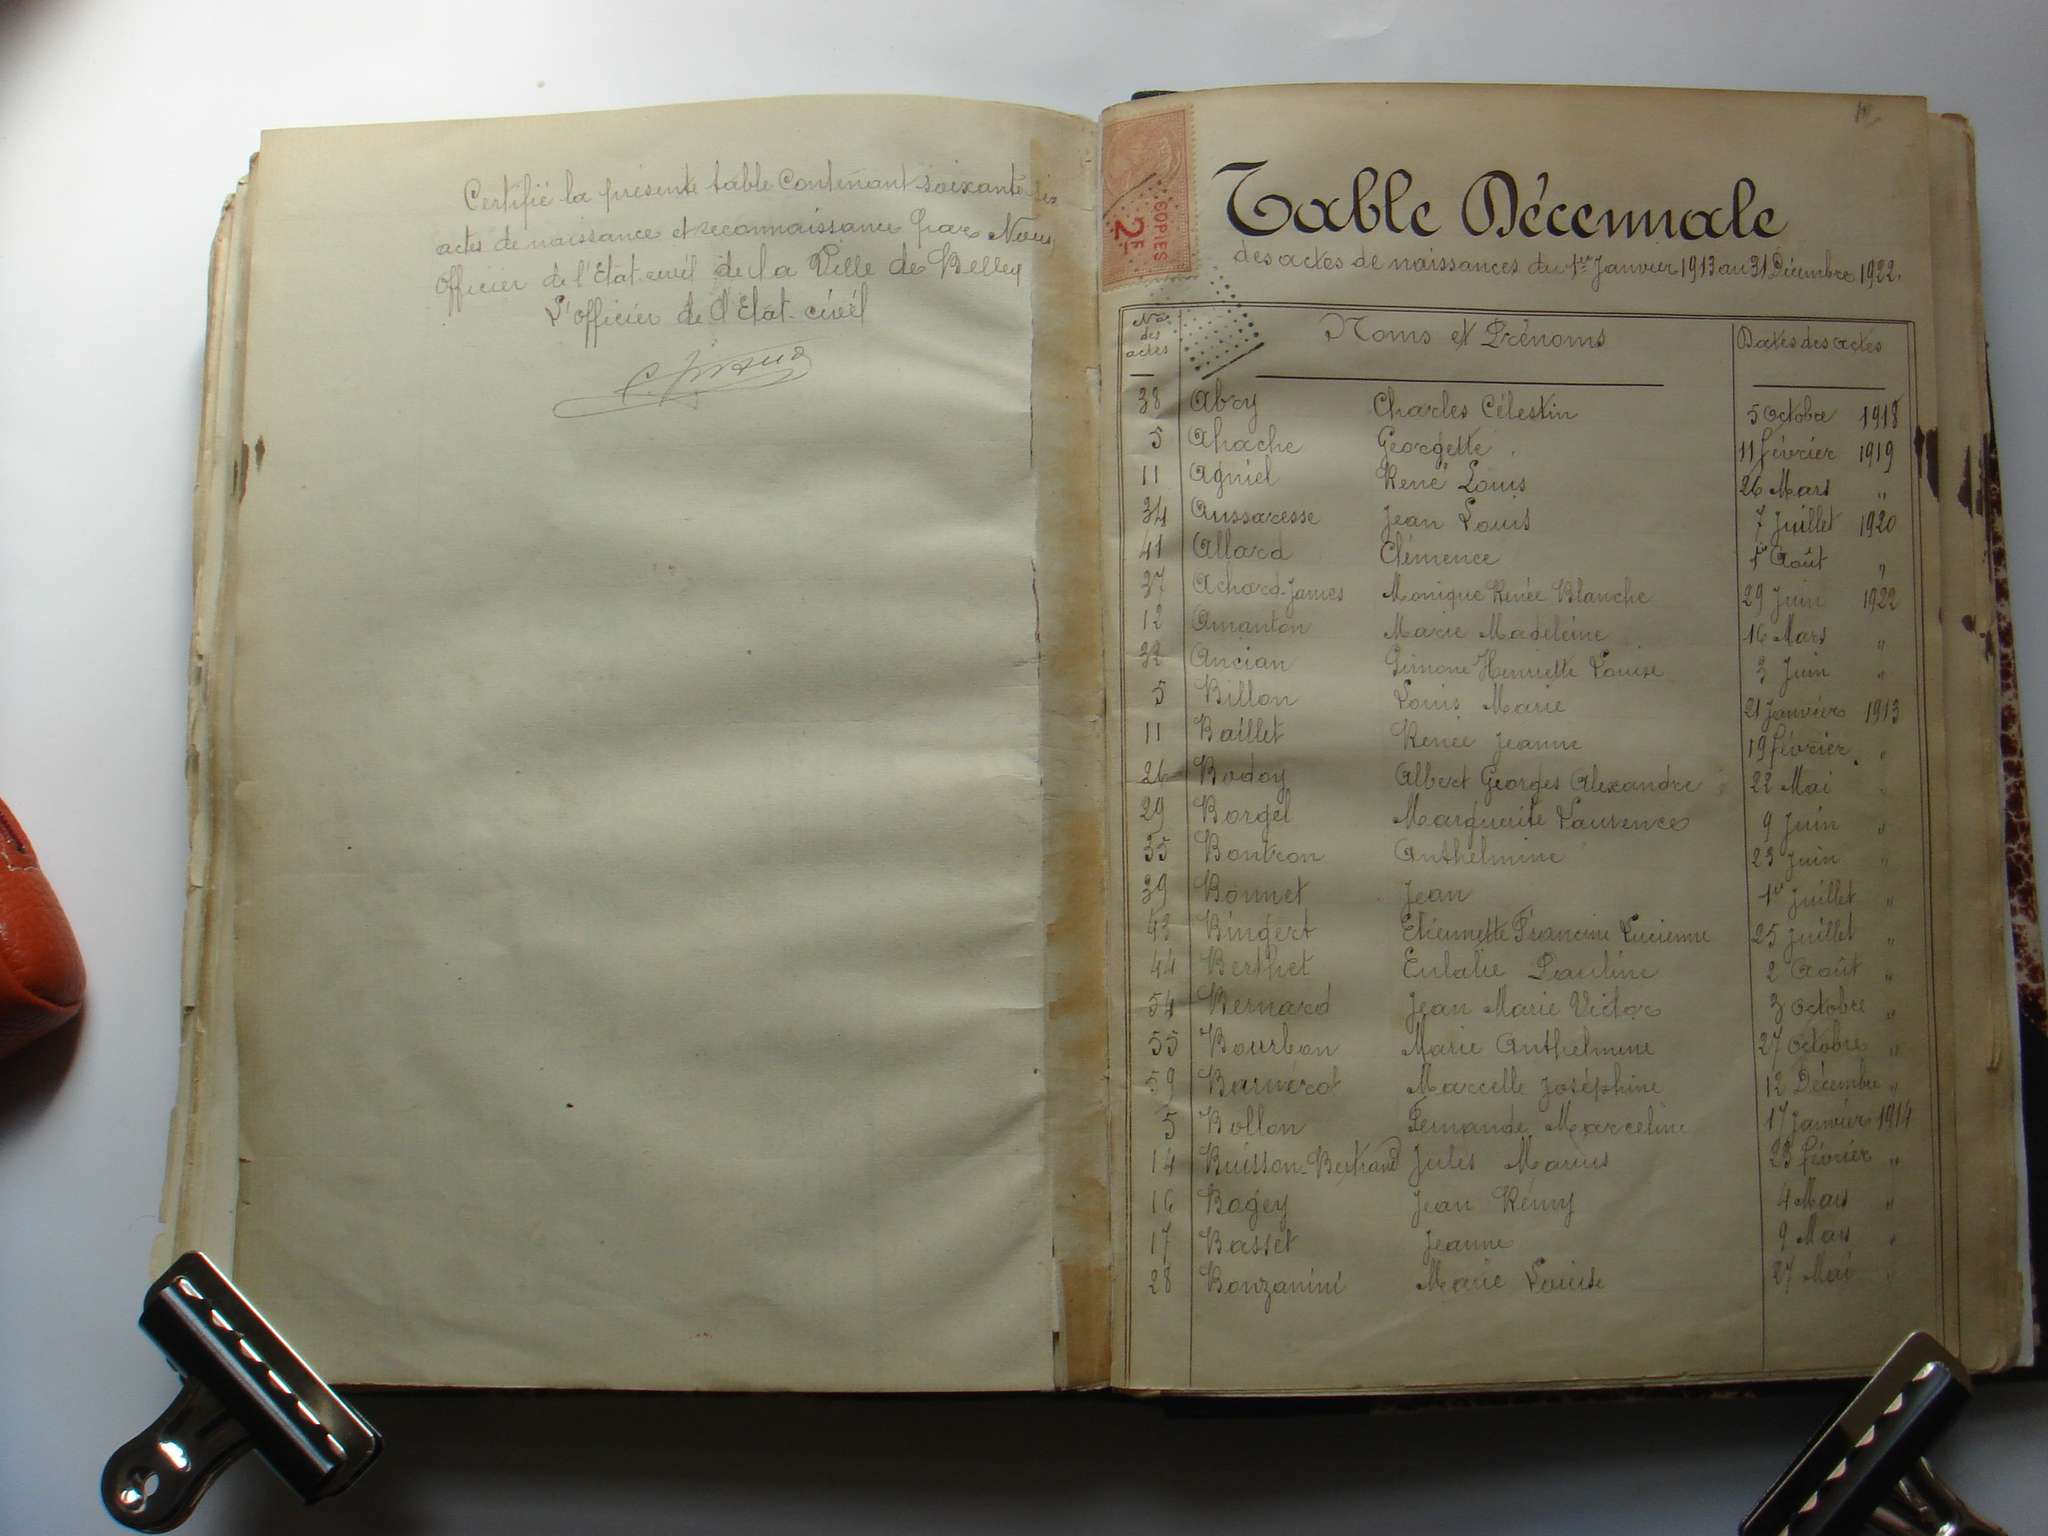 Certifié la présente table contenant soixante six
actes de naissance et reconnaissance par Nous,
Officier de l'Etat-civil de la Ville de Belley
L'officier de l'Etat-civil
COPIES
2F
Table Décennale
des actes de naissances du 1er Janvier 1913 au 31 Décembre 1922.
Nos des actes Noms et Prénoms Dates des actes
38 Abry Charles Célestin 5 Octobre 1918
5 Ahache Georgette 11 février 1919
11 Agniel René Louis 26 Mars "
34 Aussaresse Jean Louis 7 Juillet 1920
41 Allard Clémence 1er Août "
37 Achard-James Monique Renée Blanche 29 Juin 1922
12 Amanton Marie Madeleine 16 Mars "
32 Ancian Simone Henriette Louise 3 Juin "
5 Billon Louis Marie 21 Janvier 1913
11 Baillet Renée Jeanne 19 février "
26 Bodoy Albert Georges Alexandre 22 Mai "
29 Borgel Marguerite Laurence 9 Juin "
35 Bontron Anthelmine 23 Juin "
39 Bonnet Jean 1er Juillet "
43 Bingert Etiennette Francine Lucienne 25 Juillet "
44 Berthet Eulalie Pauline 2 Août "
54 Bernard Jean Marie Victor 3 Octobre "
55 Bourbon Marie Anthelmine 27 Octobre "
59 Barnérot Marcelle Joséphine 12 Décembre "
5 Bollon Fernande Marceline 17 Janvier 1914
14 Buisson-Bertrand Jules Marius 23 février "
16 Bogey Jean Rémy 4 Mars "
17 Basset Jeanne 9 Mars "
28 Bonzanini Marie Louise 27 Mai "